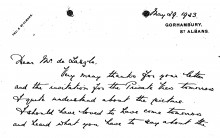 May 29. 1923
GORHAMBURY,
ST ALBANS.
Dear Mr de Laszlo
Very many thanks for your letter
and the invitation for the Private View tomorrow
I quite understand about the picture
I should have loved to have come tomorrow
and heard what you have to say about the